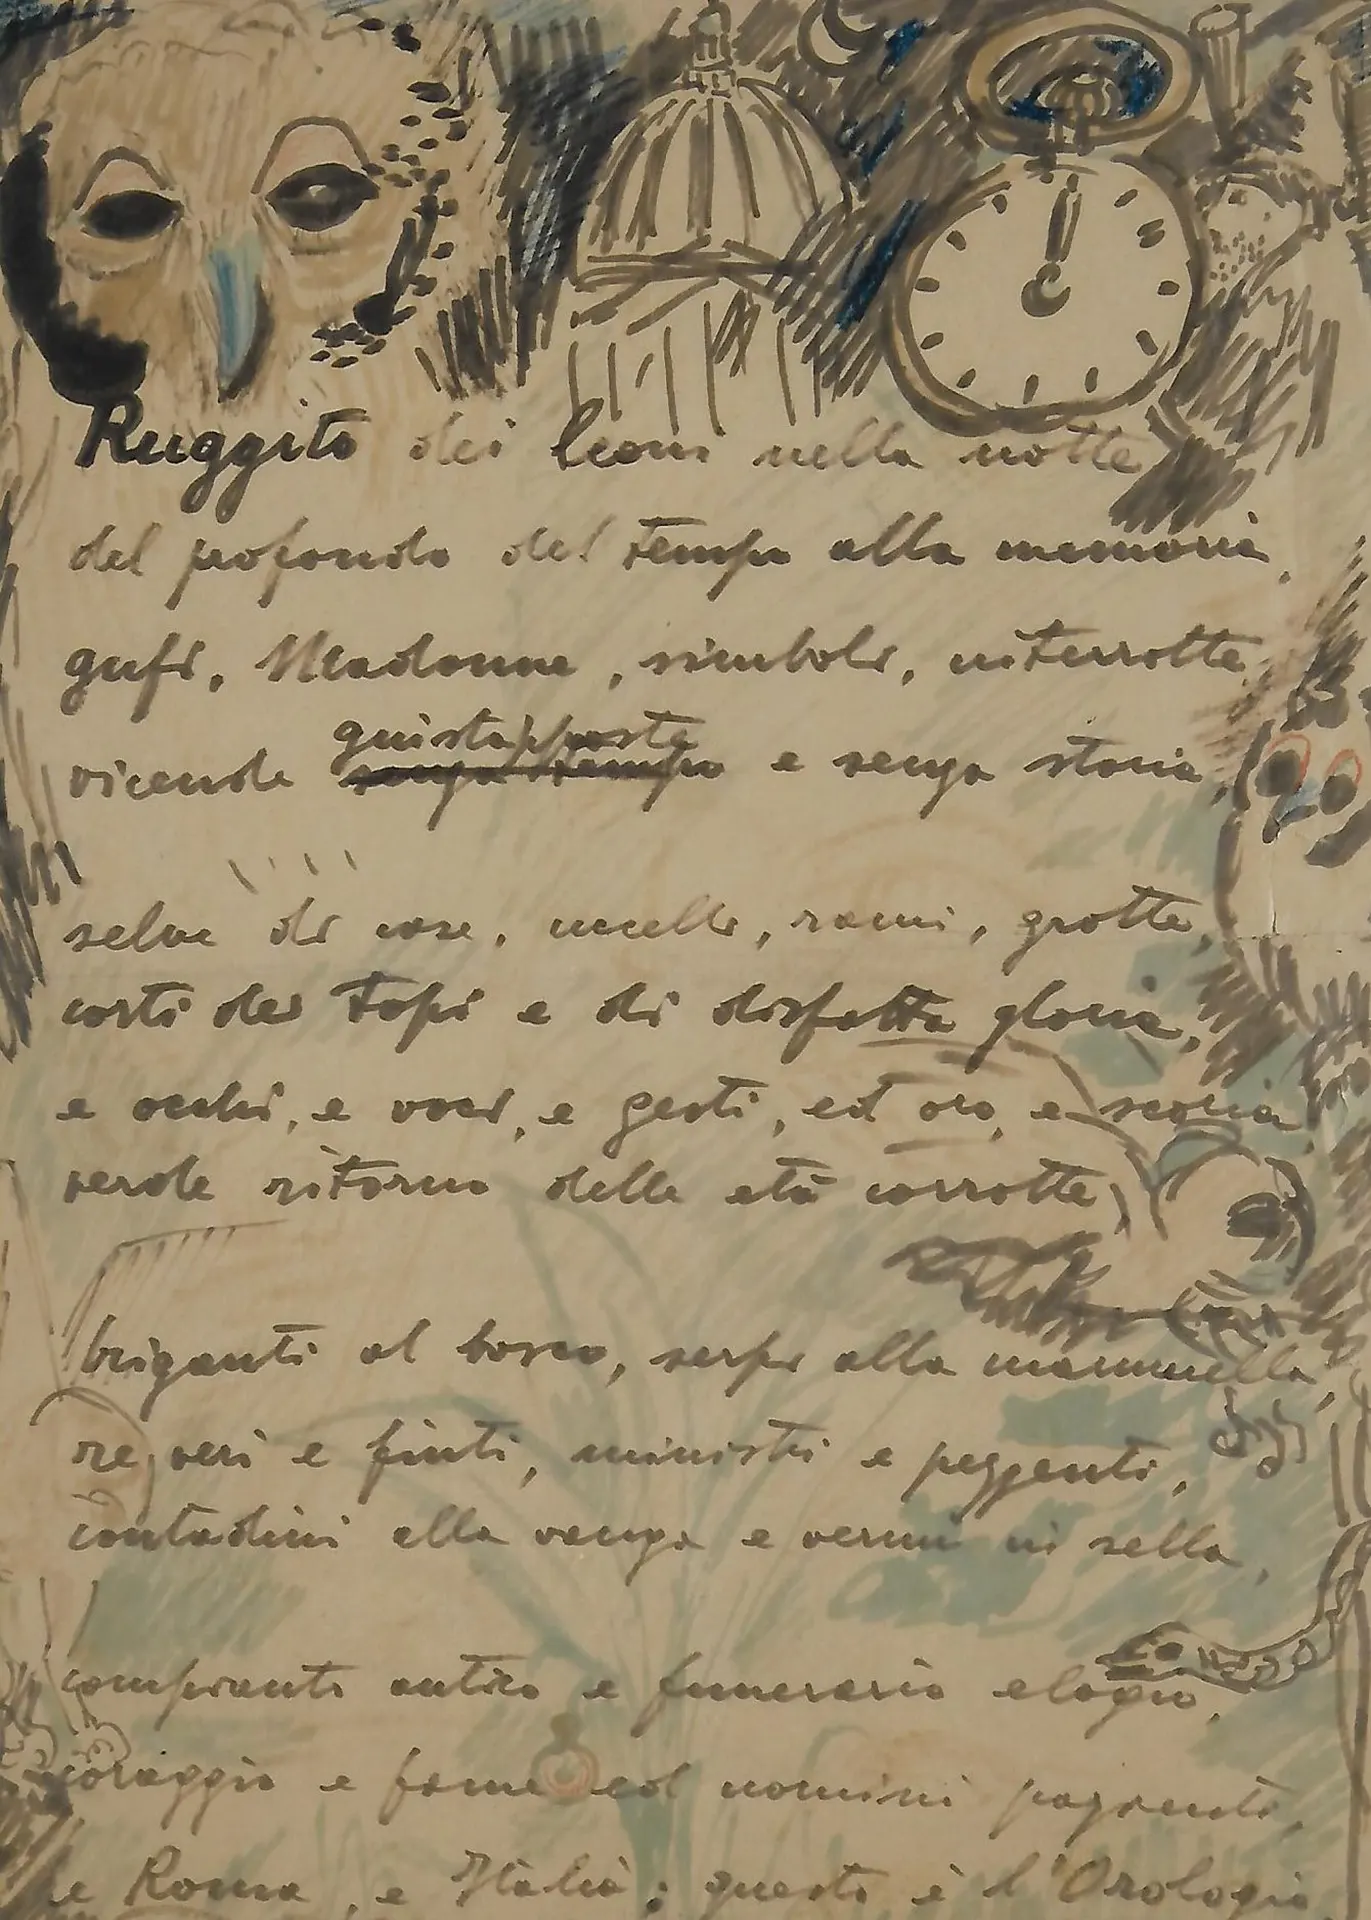 Ruggito dei leoni nella notte
del profondo del tempo alla memoria,
gufi, Madonne, simboli, interrotte
vicende giustapposte e senza storia,
selve di case, uccelli, rami, grotte,
corti dei topi e di disfatta gloria,
e occhi, e voci, e gesti, ed oro, e scoria,
verde ritorno delle età corrotte,
briganti al bosco, serpi alla mammella,
re veri e finti, ministri e pezzenti,
contadini alla vanga e vermi in sella,
compianto antico e funerario elogio,
coraggio e fame ed uomini pazienti,
e Roma, e Italia: questo è l'Orologio